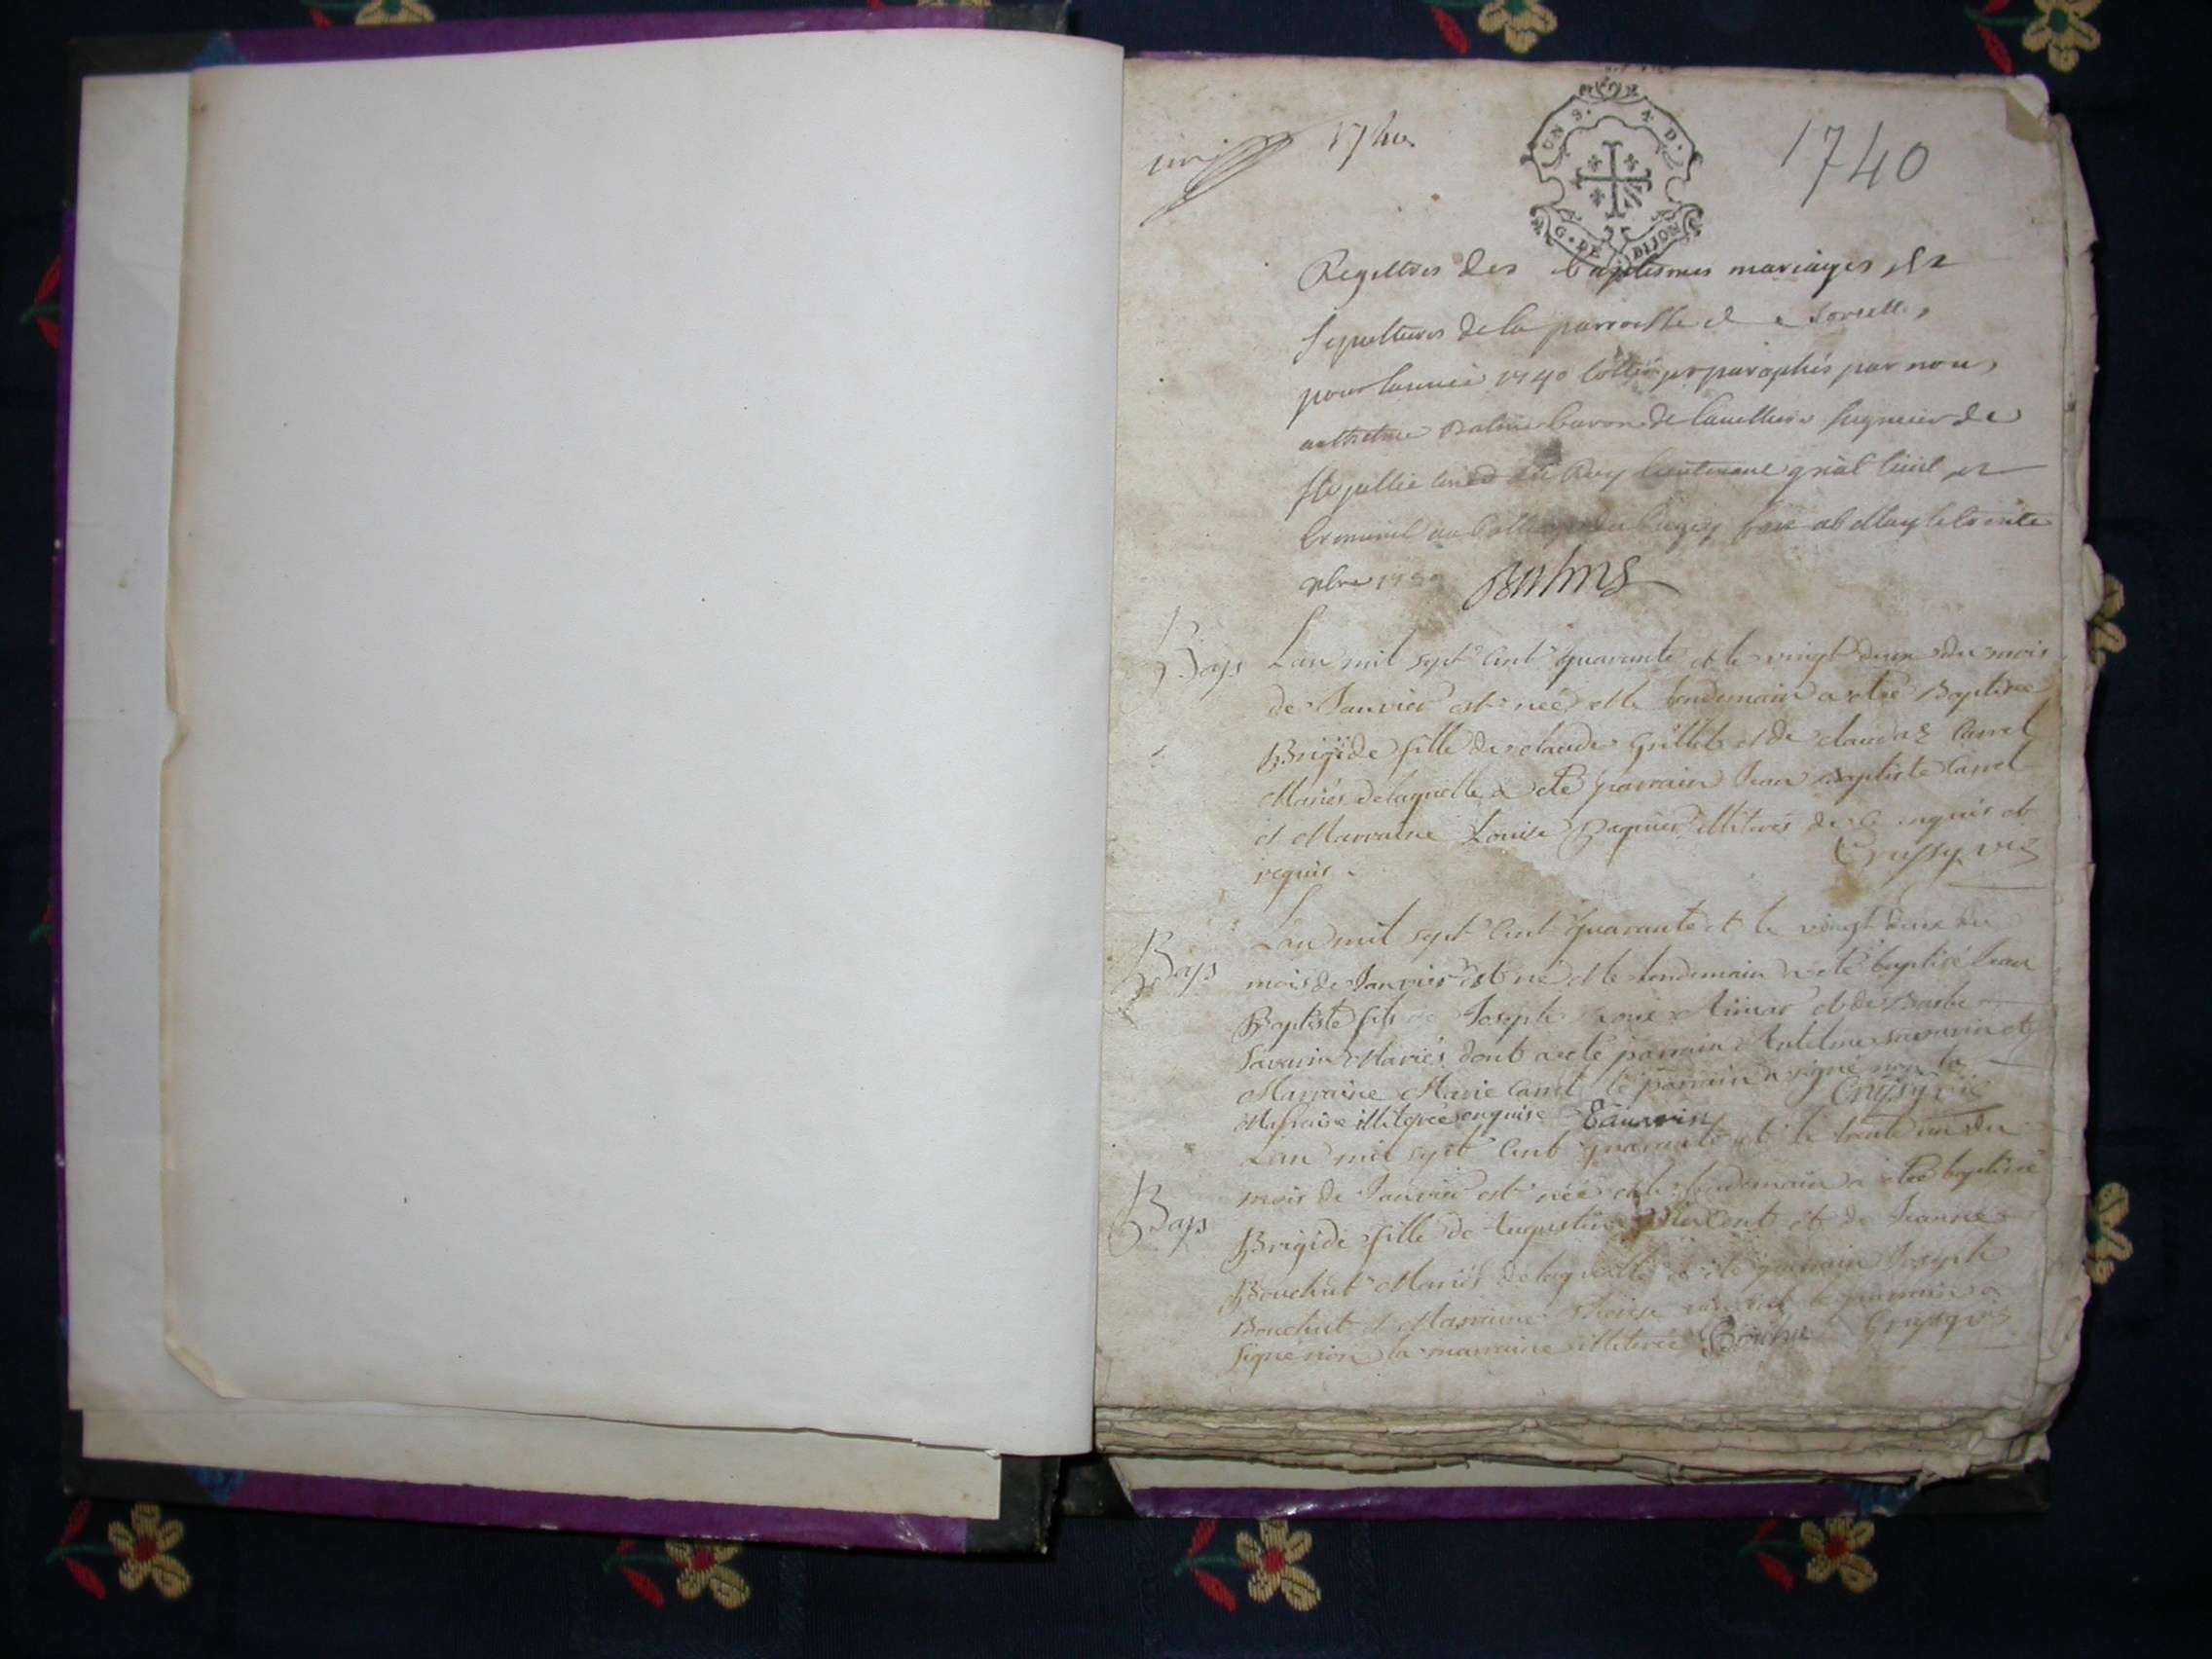 1740
UN S. A. D.
1740
G. DE DIJON
Registres des baptesmes mariages et
sepultures de la parroisse de
pour lannée 1740 cottés et paraphés par nous
anthelme Balme baron de seigneur de
du Roy lieutenant gnal civil et
criminel au fait a Belley le trente
1739 Balme
Bap Lan mil sept cent quarante et le vingt deux du mois
de Janvier est née et le lendemain a eté Baptisée
Brigide fille de claude Grillet et de claudaz Carrel
Mariés de laquelle a eté parrain Jean Baptiste Carrel
et Marraine Louise illiterés de ce enquis et
requis. Crussy vic
Bap Lan mil sept cent quarante et le vingt deux du
mois de Janvier est né et le lendemain a eté baptisé Jean
Baptiste fils de Joseph et de
Savarin Mariés dont a eté parrain Antelme savarin et
Marraine Marie Carrel le parrain a signé non la
Marraine illiterée enquise Savarin Crussy vic
Lan mil sept cent quarante et le trente un du
Bap mois de Janvier est née et le lendemain a eté baptisée
Brigide fille de Augustin Vincent et de Jeanne
Bouchut Mariés de laquelle a eté parrain Joseph
Bouchut et Marraine vincent le parrain a
signé non la marraine illiterée Crussy vic